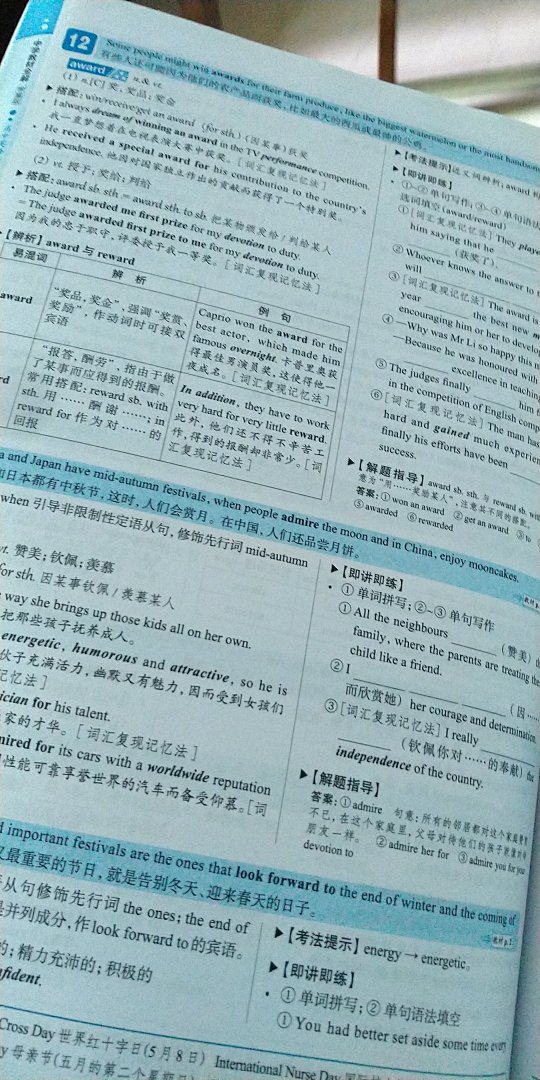 中学教材全解
12
Some people might win awards for their farm produce, like the biggest watermelon or the most handsome
有些人还可能因为他们的农产品而获奖,比如最大的西瓜或最帅的公鸡。
award n.& vt.
(1) n.[C] 奖,奖品;奖金
▶ 搭配:win/receive/get an award (for sth.) (因某事)获奖
• I always dream of winning an award in the TV performance competition.
我一直梦想着在电视表演大赛中获奖。[词汇复现记忆法]
• He received a special award for his contribution to the country's
independence. 他因对国家独立作出的贡献而获得了一个特别奖。
(2) vt. 授予;奖给;判给
▶ 搭配:award sb. sth. = award sth. to sb. 把某物颁发给/判给某人
• The judge awarded me first prize for my devotion to duty.
= The judge awarded first prize to me for my devotion to duty.
因为我的忠于职守,评委授予我一等奖。[词汇复现记忆法]
▶【辨析】award 与 reward
易混词 辨 析 例 句
award
“奖品,奖金”,强调“奖赏、
奖励”,作动词时可接双
宾语
Caprio won the award for the
best actor, which made him
famous overnight. 卡普里奥获
得最佳男演员奖,这使得他一
夜成名。[词汇复现记忆法]
“报答,酬劳”,指由于做
了某事而应得到的报酬。
常用搭配:reward sb. with
sth. 用……酬谢……;in
reward for 作为对……的
回报
In addition, they have to work
very hard for very little reward.
此外,他们还不得不辛苦工
作,得到的报酬却非常少。[词
汇复现记忆法]
▶【考法提示】近义词辨析:award 和
▶【即讲即练】
• ①~②单句写作;③~④单句语法
选词填空(award/reward)
①[词汇复现记忆法] They played
him saying that he
(获奖了).
② Whoever knows the answer to
will
③[词汇复现记忆法] The award is
year the best new
encouraging him or her to develop
④ —Why was Mr Li so happy this
—Because he was honoured with
excellence in teaching
⑤ The judges finally him
in the competition of English
⑥[词汇复现记忆法] The man has
hard and gained much
finally his efforts have been
success.
▶【解题指导】award sb. sth. 与 reward sb. with
意为“用……奖励某人”,注意其不同的搭配。
答案:① won an award ② get an award ③ to
⑤ awarded ⑥ rewarded
and Japan have mid-autumn festivals, when people admire the moon and in China, enjoy mooncakes.
日本都有中秋节,这时,人们会赏月。在中国,人们还品尝月饼。
when 引导非限制性定语从句,修饰先行词 mid-autumn
vt. 赞美;钦佩;羡慕
for sth. 因某事钦佩/羡慕某人
way she brings up those kids all on her own.
把那些孩子抚养成人。
energetic, humorous and attractive, so he is
伙子充满活力,幽默又有魅力,因而受到女孩们
记忆法]
ician for his talent.
家的才华。[词汇复现记忆法]
mired for its cars with a worldwide reputation
性能可靠享誉世界的汽车而备受仰慕。[词
▶【即讲即练】
• ① 单词拼写;②~③ 单句写作
① All the neighbours (赞美)
family, where the parents are treating the
child like a friend.
② I (因……
而欣赏她) her courage and determination.
③[词汇复现记忆法] I really
(钦佩你对……的奉献) the
independence of the country.
▶【解题指导】
答案:① admire 句意:所有的邻居都对这个家庭赞赏
不已,在这个家庭里,父母对待他们的孩子就像对待
朋友一样。 ② admire her for ③ admire you for your
devotion to
important festivals are the ones that look forward to the end of winter and the coming of
最重要的节日,就是告别冬天、迎来春天的日子。
从句修饰先行词 the ones; the end of
并列成分,作 look forward to 的宾语。
的;精力充沛的;积极的
nfident.
▶【考法提示】energy → energetic。
▶【即讲即练】
• ① 单词拼写;② 单句语法填空
① You had better set aside some time every
Cross Day 世界红十字日(5月8日) International Nurse Day
母亲节(五月的第二个星期日)